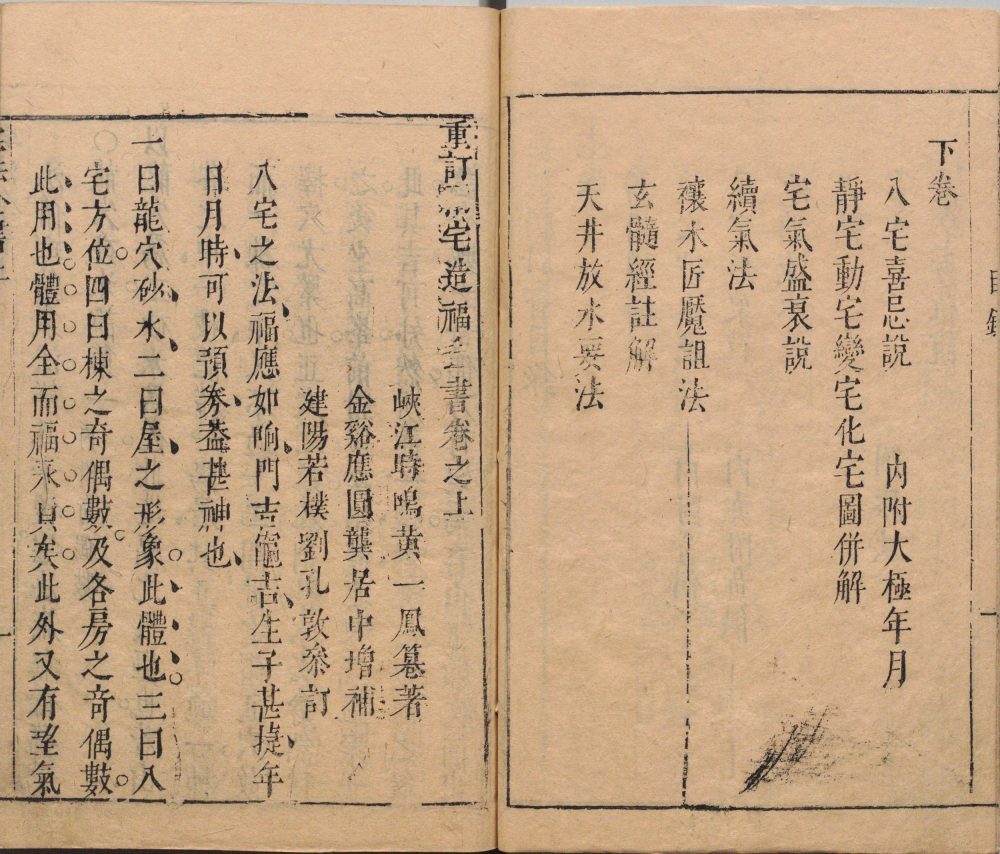 目錄
下卷
八宅喜忌說 內附大極年月
靜宅動宅變宅化宅圖併解
宅氣盛衰說
續氣法
禳木匠魘詛法
玄髓經註解
天井放水要法
一
重訂 宅造福全書卷之上
峽江時鳴黃一鳳篡著
金谿應圓龔居中增補
建陽若樸劉孔敦叅訂
八宅之法福應如响門吉竈吉生子甚㨗年
日月時可以預券葢甚神也
一曰龍穴砂水二曰屋之形象此體也三曰八
宅方位四曰棟之奇偶數及各房之奇偶數
此用也體用全而福永 矣此外又有 氣
一